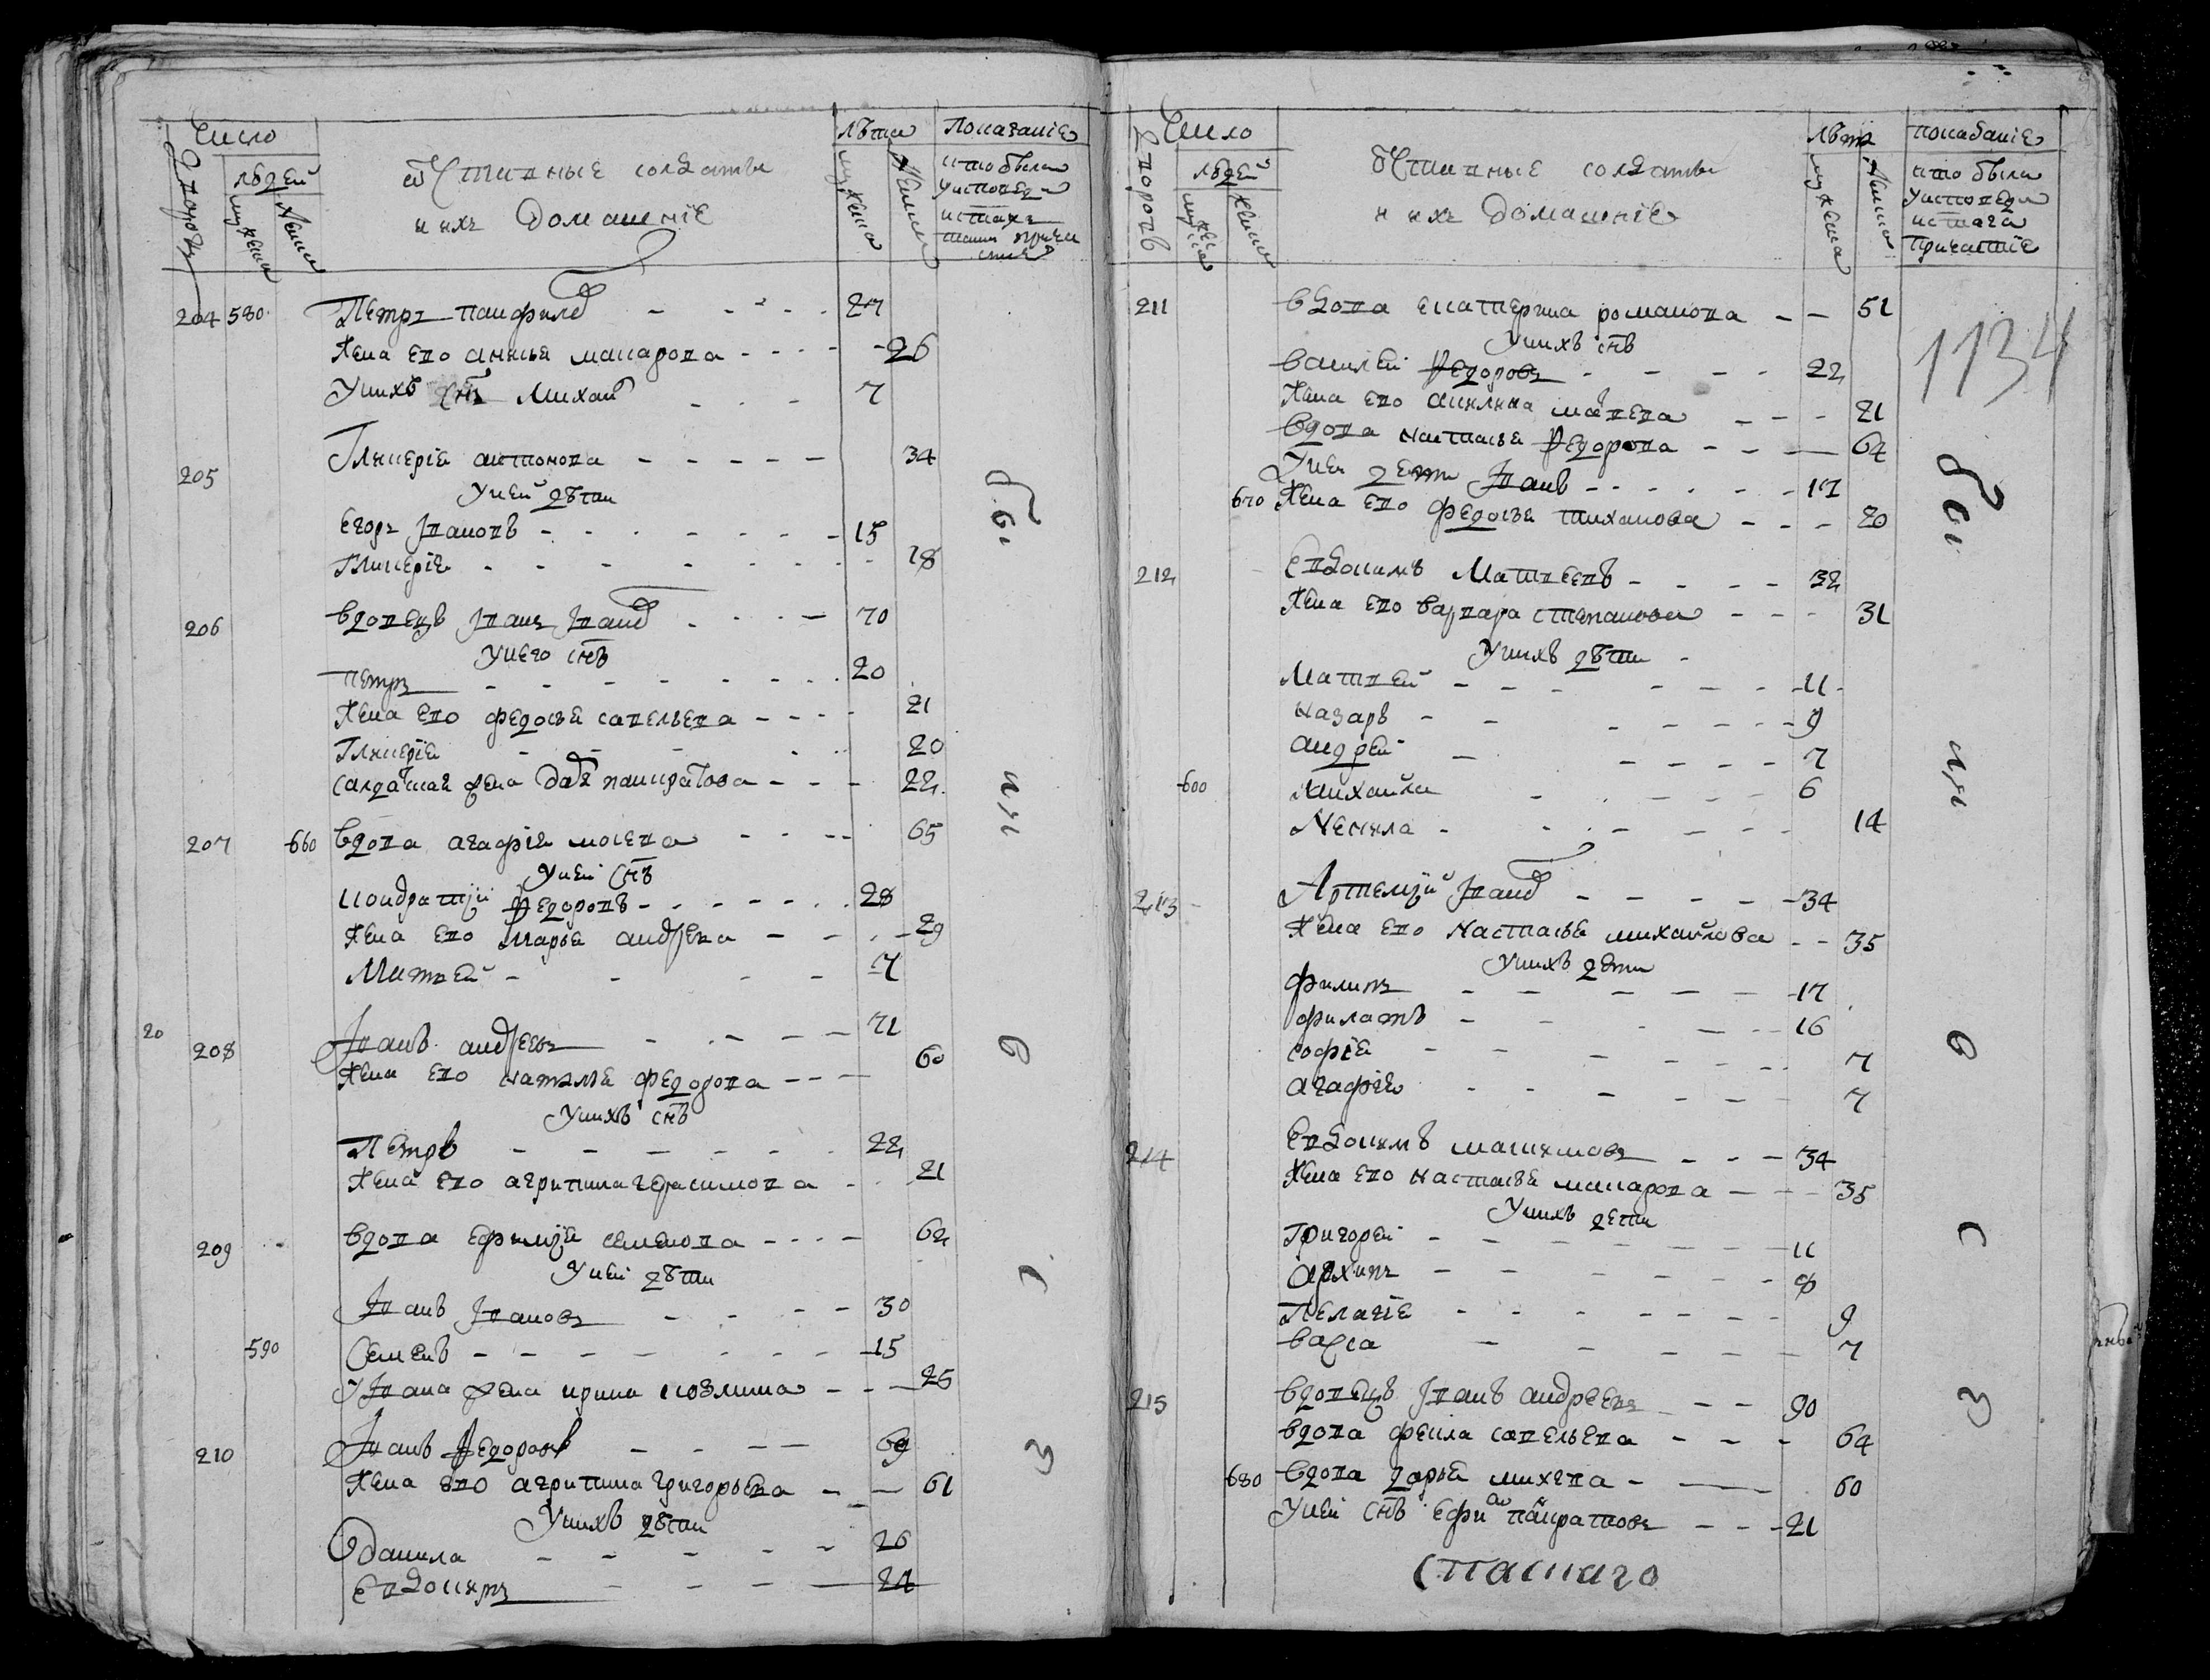 Число
Дворовъ
людей
мужеска
женска
Отставные солдаты
и ихъ домашнїе
лѣта
мужеска
женска
Показанїе
кто были
у исповѣди
и с̃таго
причастїе
204 580 Петръ Панфиловъ 27
Жена ево Анисья Макарова 26
У нихъ сн҃ъ Михаилъ 7
205 Гликерїя Антонова 34
У неи дѣти
Егоръ Івановъ 15
Гликерїя 18
206 Вдовецъ Іванъ Івановъ 70
У него сн҃ъ
Петръ 20
Жена ево Федосья Савельева 21
Гликерїя 20
Салдатская жена Дарья Панкратова 22
207 660 Вдова Агафїя Мосева 65
У неи сн҃ъ
Кондратїй Федоровъ 28
Жена ево Марья Андреева 29
Матвей 7
20
208 Іванъ Андреевъ 71
Жена ево Наталья Федорова 60
У нихъ сн҃ъ
Петръ 22
Жена ево Агрипина Герасимова 21
209 Вдова Ефимїя Семенова 62
У неи дѣти
Іванъ Івановъ 30
590 Семенъ 15
У Івана жена Ирина Козмина 25
210 Іванъ Федоровъ 69
Жена ево Агрипина Григорьева 61
У нихъ дѣти
Данила 26
Евдокимъ 24
были
и
в
с
з
Число
дворовъ
людей
мужеска
женска
Отставные солдаты
и ихъ домашнїе
лѣта
мужеска
женска
показанїе
кто были
у исповеди
и с̃таго
причастїе
211 Вдова Екатерина Романова 51
У нихъ сн҃ъ
Василей Федоровъ 22
Жена ево Акилина 21
Вдова Настасья Федорова 64
У неи дети Іванъ 17
670 Жена ево Федосья Тиханова 20
212 Евдокимъ Матвеевъ 32
Жена ево Варвара Степанова 31
У нихъ дѣти
Матвей 11
Назаръ 9
Андрей 7
600 Михайла 6
Текила 14
213 Артемїй Івановъ 34
Жена ево Настасья Михайлова 35
У нихъ дети
Филипъ 17
Филатъ 16
Софїя 7
Агафїя 7
214 Евдокимъ Максимовъ 34
Жена ево Настасья Макарова 35
У нихъ дети
Григорей 11
Архипъ 8
Пелагїя 9
Васса 7
215 Вдовецъ Іванъ Андреевъ 90
Вдова Фекла Савельева 64
680 Вдова Дарья Михеева 60
У неи сн҃ъ Ефимъ Панкратовъ 21
1134
были
и
в
с
з